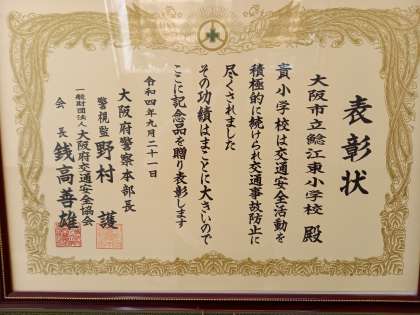 表彰状
大阪市立鯰江東小学校 殿
貴小学校は交通安全活動を
積極的に続けられ交通事故防止に
尽くされました
その功績はまことに大きいので
ここに記念品を贈り表彰します
令和四年九月二十一日
大阪府警察本部長
警視監 野村護
一般財団法人 大阪府交通安全協会
会長 銭高善雄